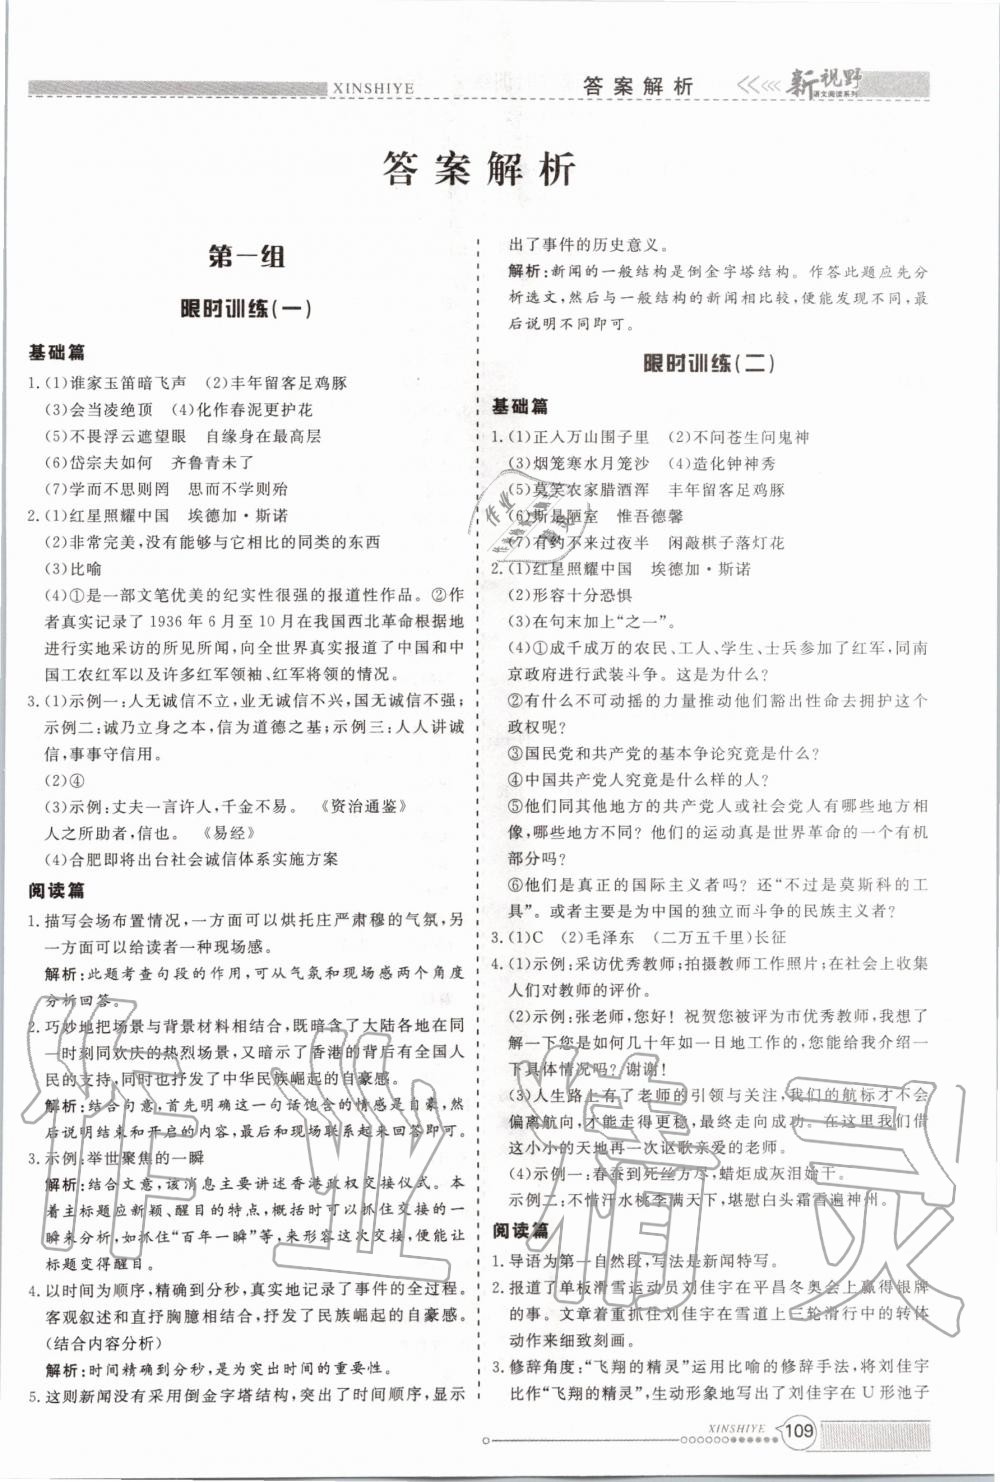 XINSHIYE
答案解析
新视野
语文阅读系列
答案解析
第一组
限时训练(一)
基础篇
1.(1)谁家玉笛暗飞声　(2)丰年留客足鸡豚
(3)会当凌绝顶　(4)化作春泥更护花
(5)不畏浮云遮望眼　自缘身在最高层
(6)岱宗夫如何　齐鲁青未了
(7)学而不思则罔　思而不学则殆
2.(1)红星照耀中国　埃德加·斯诺
(2)非常完美,没有能够与它相比的同类的东西
(3)比喻
(4)①是一部文笔优美的纪实性很强的报道性作品。②作
者真实记录了 1936 年 6 月至 10 月在我国西北革命根据地
进行实地采访的所见所闻,向全世界真实报道了中国和中
国工农红军以及许多红军领袖、红军将领的情况。
3.(1)示例一:人无诚信不立,业无诚信不兴,国无诚信不强;
示例二:诚乃立身之本,信为道德之基;示例三:人人讲诚
信,事事守信用。
(2)④
(3)示例:丈夫一言许人,千金不易。　《资治通鉴》
人之所助者,信也。《易经》
(4)合肥即将出台社会诚信体系实施方案
阅读篇
1.描写会场布置情况,一方面可以烘托庄严肃穆的气氛,另
一方面可以给读者一种现场感。
解析:此题考查句段的作用,可从气氛和现场感两个角度
分析回答。
2.巧妙地把场景与背景材料相结合,既暗含了大陆各地在同
一时刻同欢庆的热烈场景,又暗示了香港的背后有全国人
民的支持,同时也抒发了中华民族崛起的自豪感。
解析:结合句意,首先明确这一句话饱含的情感是自豪,然
后说明结束和开启的内容,最后和现场联系起来回答即可。
3.示例:举世聚焦的一瞬
解析:结合文意,该消息主要讲述香港政权交接仪式。本
着主标题应新颖、醒目的特点,概括时可以抓住交接的一
瞬来分析,如抓住“百年一瞬”等,扣住这次交接,便能让
标题变得醒目。
4.以时间为顺序,精确到分秒,真实地记录了事件的全过程。
客观叙述和直抒胸臆相结合,抒发了民族崛起的自豪感。
(结合内容分析)
解析:时间精确到分秒,是为突出时间的重要性。
5.这则新闻没有采用倒金字塔结构,突出了时间顺序,显示
出了事件的历史意义。
解析:新闻的一般结构是倒金字塔结构。作答此题应先分
析选文,然后与一般结构的新闻相比较,便能发现不同,最
后说明不同即可。
限时训练(二)
基础篇
1.(1)正入万山围子里　(2)不问苍生问鬼神
(3)烟笼寒水月笼沙　(4)造化钟神秀
(5)莫笑农家腊酒浑　丰年留客足鸡豚
(6)斯是陋室　惟吾德馨
(7)有约不来过夜半　闲敲棋子落灯花
2.(1)红星照耀中国　埃德加·斯诺
(2)形容十分恐惧
(3)在句末加上“之一”。
(4)①成千成万的农民、工人、学生、士兵参加了红军,同南
京政府进行武装斗争。这是为什么?
②有什么不可动摇的力量推动他们豁出性命去拥护这个
政权呢?
③国民党和共产党的基本争论究竟是什么?
④中国共产党人究竟是什么样的人?
⑤他们同其他地方的共产党人或社会党人有哪些地方相
像,哪些地方不同? 他们的运动真是世界革命的一个有机
部分吗?
⑥他们是真正的国际主义者吗? 还“不过是莫斯科的工
具”。或者主要是为中国的独立而斗争的民族主义者?
3.(1)C　(2)毛泽东　(二万五千里)长征
4.(1)示例:采访优秀教师;拍摄教师工作照片;在社会上收集
人们对教师的评价。
(2)示例:张老师,您好! 祝贺您被评为市优秀教师,我想了
解一下您是如何几十年如一日地工作的,您能给我介绍一下
具体情况吗? 谢谢!
(3)人生路上有了老师的引领与关注,我们的航标才不会
偏离方向,才能走得更稳,最终走向成功。在这里,让我们以
这小小的天地再一次讴歌亲爱的老师。
(4)示例一:春蚕到死丝方尽,蜡炬成灰泪始干。
示例二:不惜汗水桃李满天下,堪慰白头霜雪遍神州。
阅读篇
1.导语为第一自然段,写法是新闻特写。
2.报道了单板滑雪运动员刘佳宇在平昌冬奥会上赢得银牌
的事。文章着重抓住刘佳宇在雪道上三轮滑行中的转体
动作来细致刻画。
3.修辞角度:“飞翔的精灵”运用比喻的修辞手法,将刘佳宇
比作“飞翔的精灵”,生动形象地写出了刘佳宇在 U 形池子
XINSHIYE
109
作业精灵